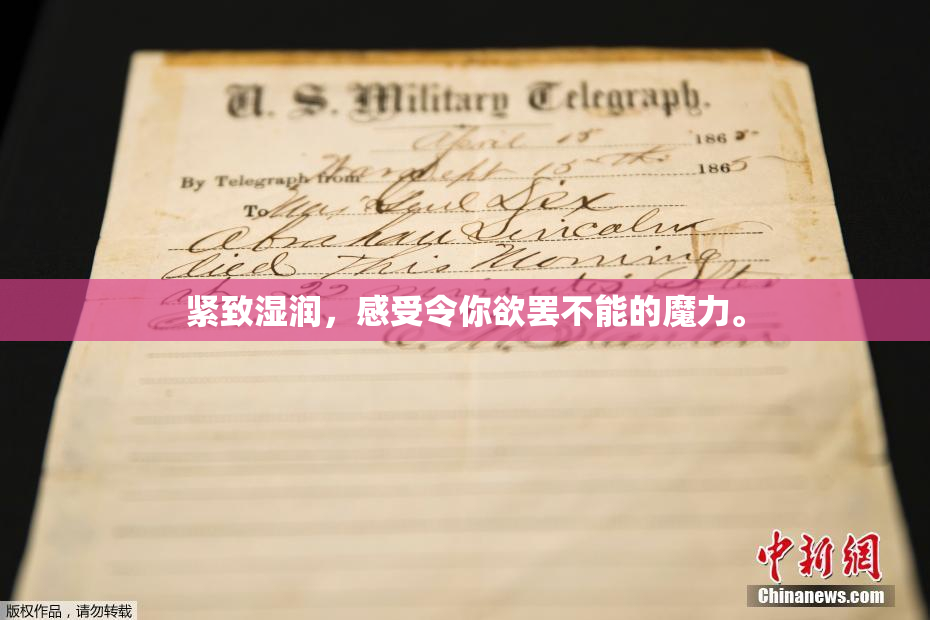 U. S. Military Telegraph.
April 15 1865
By Telegraph from War Dept 15th 1865
To Maj Genl Dix
Abraham Lincoln
died This Morning
at 22 minutes after
紧致湿润，感受令你欲罢不能的魔力。
E. M. Stanton
中新网
Chinanews.com
版权作品，请勿转载